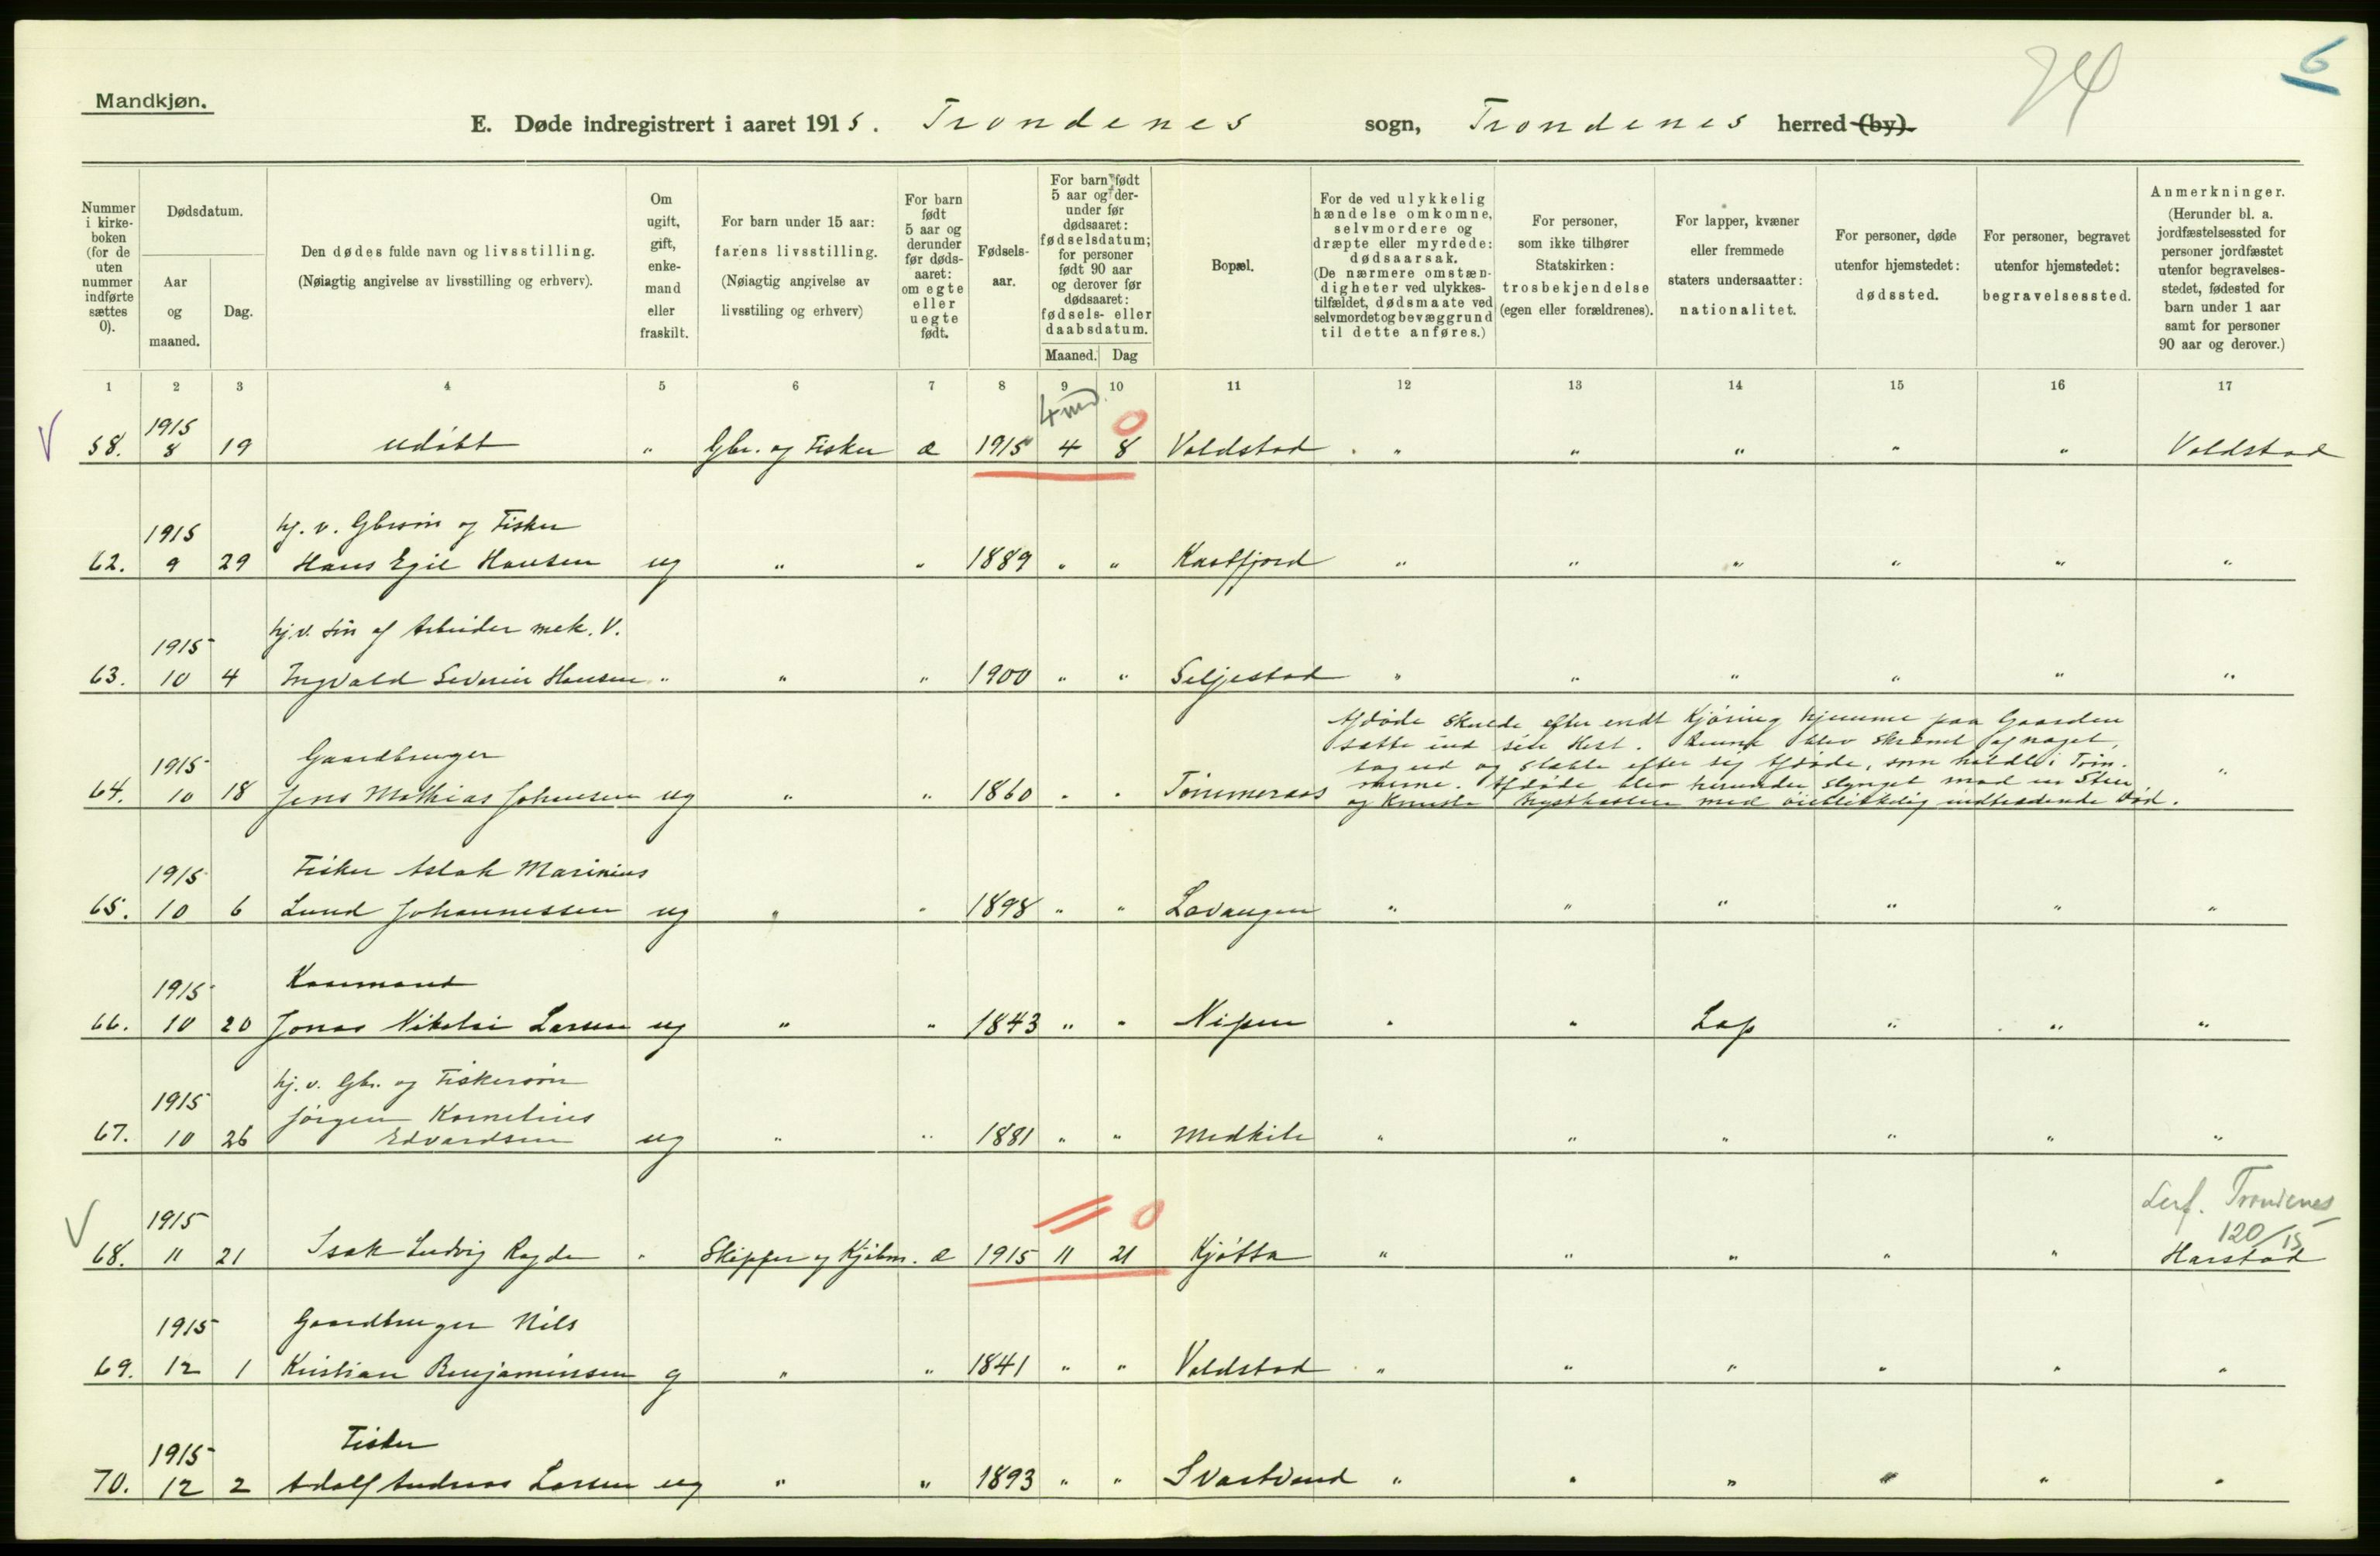 24
6
Mandkjøn.
E. Døde indregistrert i aaret 1915. Trondenes sogn, Trondenes herred (by).
Nummer i kirke-boken (for de uten nummer indførte sættes 0).
Dødsdatum.
Aar og maaned.
Dag.
Den dødes fulde navn og livsstilling.
(Nøiagtig angivelse av livsstilling og erhverv).
Om ugift, gift, enke-mand eller fraskilt.
For barn under 15 aar: farens livsstilling.
(Nøiagtig angivelse av livsstiling og erhverv)
For barn født 5 aar og derunder før døds-aaret: om egte eller uegte født.
Fødsels-aar.
For barn født 5 aar og der-under før dødsaaret: fødselsdatum; for personer født 90 aar og derover før dødsaaret: fødsels- eller daabsdatum.
Maaned. Dag
Bopæl.
For de ved ulykkelig hændelse omkomne, selvmordere og dræpte eller myrdede: dødsaarsak.
(De nærmere omstæn-digheter ved ulykkes-tilfældet, dødsmaate ved selvmordet og bevæggrund til dette anføres.)
For personer, som ikke tilhører Statskirken: trosbekjendelse (egen eller forældrenes).
For lapper, kvæner eller fremmede staters undersaatter: nationalitet.
For personer, døde utenfor hjemstedet: dødssted.
For personer, begravet utenfor hjemstedet: begravelsessted.
Anmerkninger.
(Herunder bl. a. jordfæstelsessted for personer jordfæstet utenfor begravelses-stedet, fødested for barn under 1 aar samt for personer 90 aar og derover.)
1 2 3 4 5 6 7 8 9 10 11 12 13 14 15 16 17
4 md. 0
V 58. 1915 8 19 udöbt " Gbr. og Fisker æ 1915 4 8 Voldstad " " " " " Voldstad
hj. v. Gbrsön og Fisker
62. 1915 9 29 Hans Egil Hansen ug " " 1889 " " Kastfjord " " " " " "
hj. v. Sön af Arbeider mek. V.
63. 1915 10 4 Ingvald Severin Hansen " " " 1900 " " Seljestad " " " " " "
Afdöde skulde efter endt Kjöring hjemme paa Gaarden
sætte ind sin Hest. Denne blev skræmt af noget,
tog ud og slæbte efter sig Afdöde, som holdt i Töm-
merne. Afdöde blev herunder slynget mod en Sten
og knuste Brystkassen med öieblikkelig indtrædende Död.
Gaardbruger
64. 1915 10 18 Jens Mathias Johnsen ug " " 1860 " " Tömmeraas "
Fisker Aslak Marinius
65. 1915 10 6 Lund Johannessen ug " " 1898 " " Lavangen " " " " " "
Kaarmand
66. 1915 10 20 Jonas Nikolai Larsen ug " " 1843 " " Nipen " " Lap " " "
hj. v. Gbr. og Fiskersön
Jörgen Kornelius
67. 1915 10 26 Edvardsen ug " " 1881 " " Medkile " " " " " "
0
Trondenes
120/15
V 68. 1915 11 21 Isak Ludvig Ryde " Skipper og Kjöbm. æ 1915 11 21 Kjötta " " " " " Harstad
Gaardbruger Nils
69. 1915 12 1 Kristian Benjaminsen g " " 1841 " " Voldstad " " " " " "
Fisker
70. 1915 12 2 Adolf Andreas Larsen ug " " 1893 " " Svartvand " " " " " "